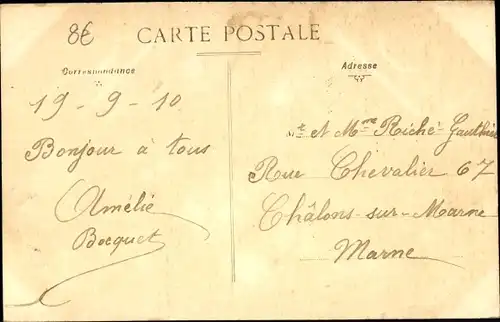 8€
CARTE POSTALE
Correspondance
Adresse
19-9-10
Bonjour à tous
Amélie
Bocquet
Mr et Mme Riché-Gauthier
Rue Chevalier 67
Châlons-sur-Marne
Marne